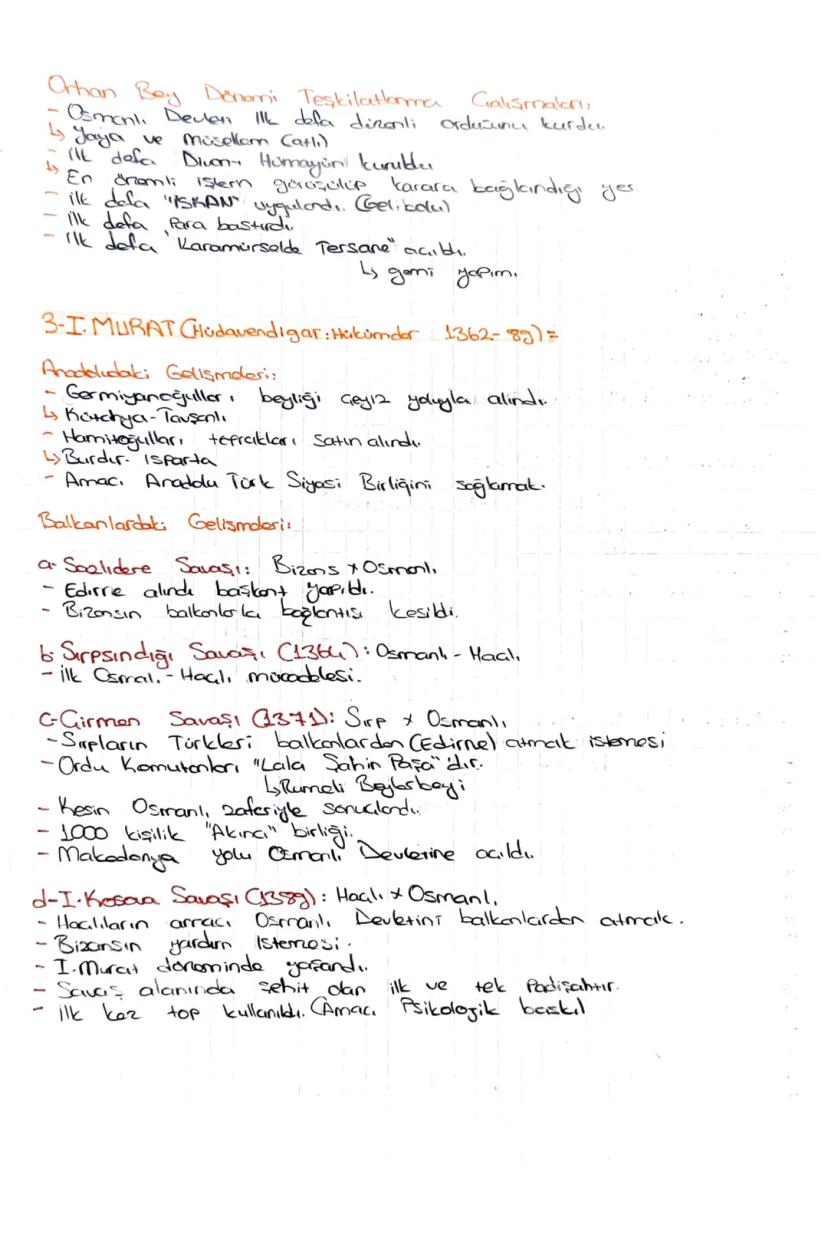 Orhan Bey Dönemi Teşkilatlanma Çalışmaları:
- Osmanlı Devleti İlk defa düzenli ordusunu kurdu.
↳ Yaya ve Müsellem (atlı)
- İlk defa Divan-ı Hümayün kuruldu
↳ En önemli işlerin görüşülüp karara bağlandığı yer.
- İlk defa "İSKAN" uygulandı. (Gelibolu)
- İlk defa Para bastırdı.
- İlk defa "Karamürselde Tersane" açıldı.
↳ gemi yapımı
3-I. MURAT (Hüdavendigar: Hükümdar 1362-89) =
Anadoludaki Gelişmeleri:
- Germiyanoğulları beyliği çeyiz yoluyla alındı.
↳ Kütahya-Tavşanlı
- Hamitoğulları toprakları satın alındı.
↳ Burdur-Isparta
- Amacı Anadolu Türk Siyasi Birliğini sağlamak.
Balkanlardaki Gelişmeleri:
a- Sazlıdere Savaşı: Bizans x Osmanlı
- Edirne alındı başkent yapıldı.
- Bizansın balkanlarla bağlantısı kesildi.
b- Sırpsındığı Savaşı (1364): Osmanlı - Haçlı
- İlk Osmanlı - Haçlı mücadelesi.
c- Çirmen Savaşı (1371): Sırp x Osmanlı
- Sırpların Türkleri balkanlardan (Edirne) atmak istemesi
- Ordu Komutanları "Lala Şahin Paşa" dır.
↳ Rumeli Beylerbeyi
- Kesin Osmanlı zaferiyle sonuçlandı.
- 1000 kişilik "Akıncı" birliği.
- Makedonya yolu Osmanlı Devletine açıldı.
d- I. Kosova Savaşı (1389): Haçlı x Osmanlı
- Haçlıların amacı Osmanlı Devletini balkanlardan atmak.
- Bizansın yardım İstemesi.
- I. Murat döneminde yaşandı.
- Savaş alanında şehit olan ilk ve tek Padişahtır.
- İlk kez top kullanıldı. (Amacı Psikolojik baskı)